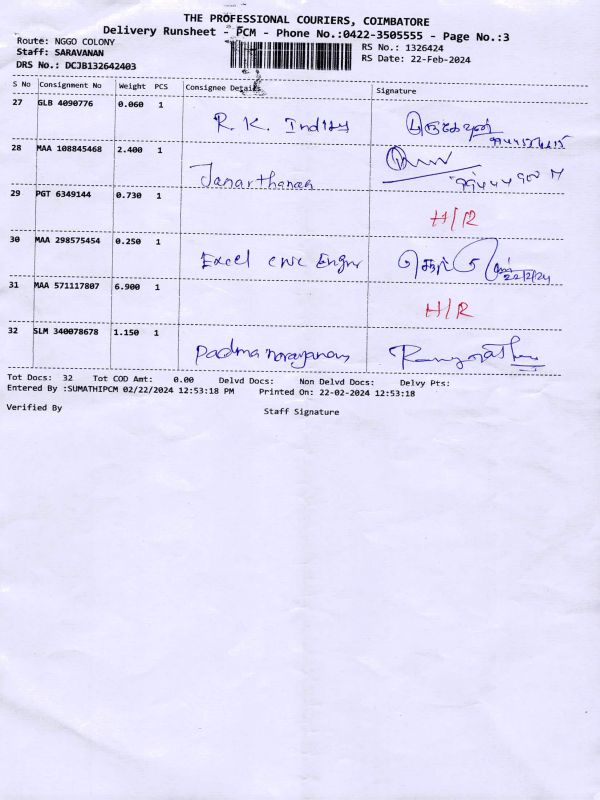 THE PROFESSIONAL COURIERS, COIMBATORE
Delivery Runsheet - PCM - Phone No.:0422-3505555 - Page No.:3
Route: NGGO COLONY
Staff: SARAVANAN
DRS No.: DCJB132642403
RS No.: 1326424
RS Date: 22-Feb-2024
S No Consignment No Weight PCS Consignee Details Signature
27 GLB 4090776 0.060 1
R. K. Indtry
28 MAA 108845468 2.400 1
Janarthanan
29 PGT 6349144 0.730 1
H/R
30 MAA 298575454 0.250 1
Excel cnc Engr
22/2/24
31 MAA 571117807 6.900 1
H/R
32 SLM 340078678 1.150 1
Padma narayanan
Tot Docs: 32 Tot COD Amt: 0.00 Delvd Docs: Non Delvd Docs: Delvy Pts:
Entered By :SUMATHIPCM 02/22/2024 12:53:18 PM Printed On: 22-02-2024 12:53:18
Verified By Staff Signature